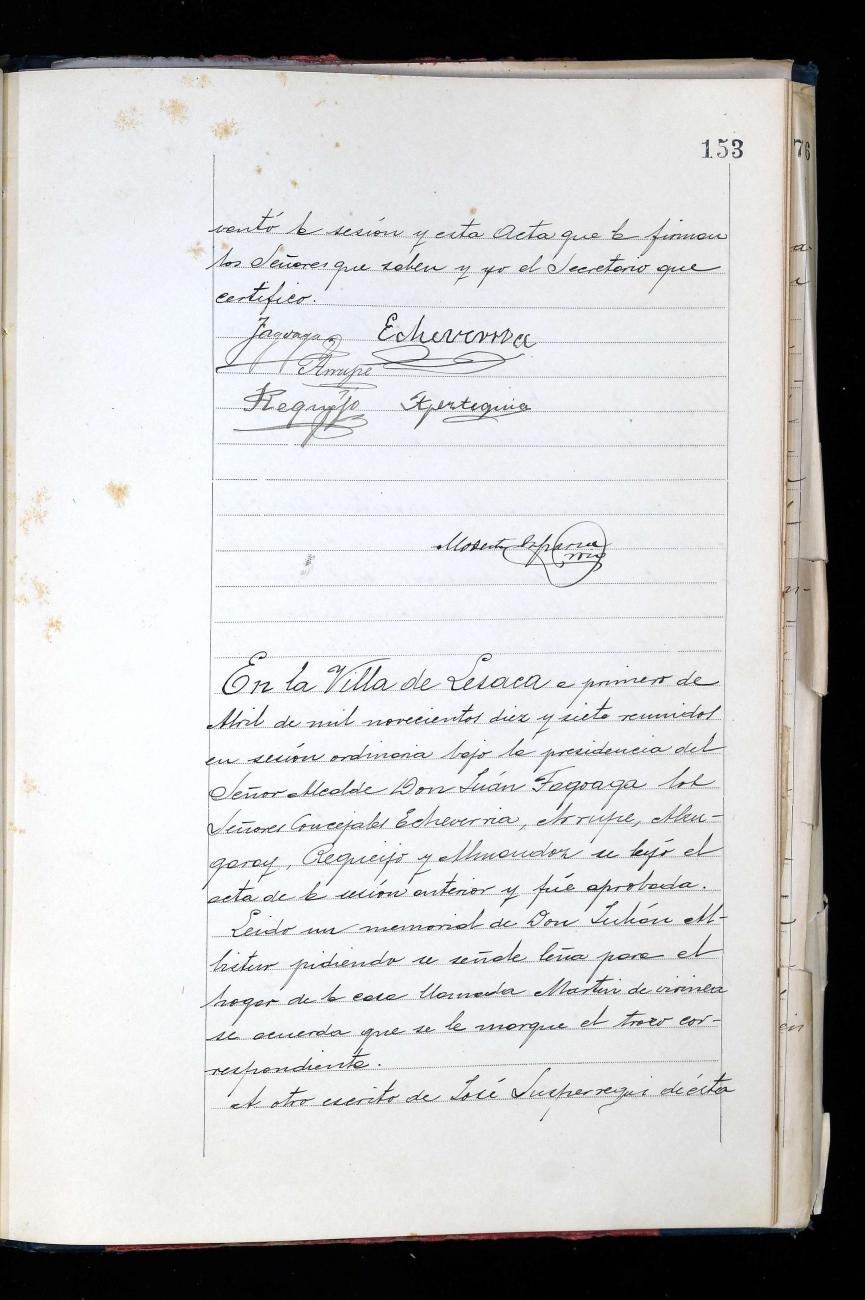 153
76
vantó la sesión y esta Acta que la firman
los Señores que saben y yo el Secretario que
certifico.
Fagoaga Echeverria
Arrupe
Requejo Apezteguia
Modesto Esparza
En la Villa de Lesaca a primero de
Abril de mil novecientos diez y siete reunidos
en sesión ordinaria bajo la presidencia del
Señor Alcalde Don Juán Fagoaga los
Señores Concejales Echeverria, Arrupe, Alen-
garay, Requeijo y Almandoz se leyó el
acta de la sesión anterior y fué aprobada.
Leido un memorial de Don Julián Al-
bistur pidiendo se señale leña para el
hogar de la casa llamada Martin de
se acuerda que se le marque el trozo cor-
respondiente.
A otro escrito de José Susperregui de ésta